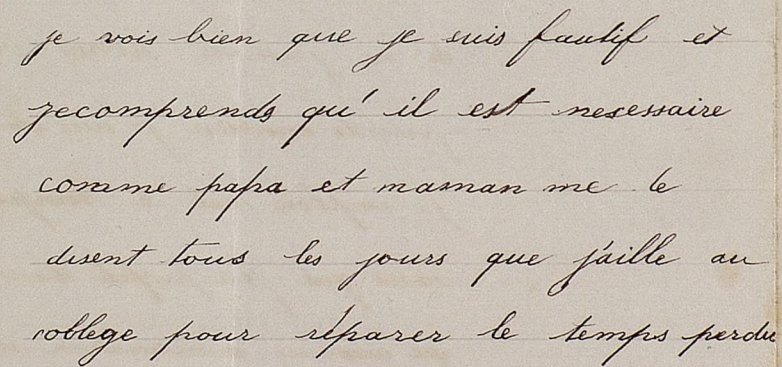 je vois bien que je suis fautif et
jecomprends qu' il est nesessaire
comme papa et maman me le
disent tous les jours que j'aille au
collège pour réparer le temps perdu